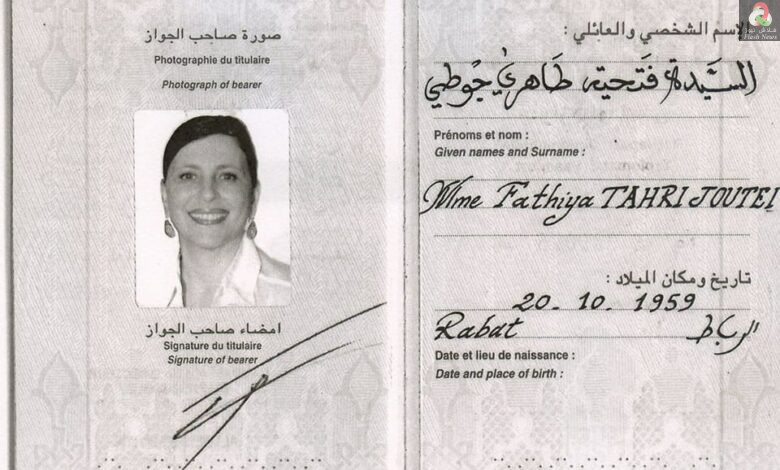 صورة صاحب الجواز
Photographie du titulaire
Photograph of bearer
امضاء صاحب الجواز
Signature du titulaire
Signature of bearer
الإسم الشخصي والعائلي :
السَّيدة فَتحية طَاهريْ جُوطي
Prénoms et nom :
Given names and Surname :
Mme Fathiya TAHRI JOUTEI
تاريخ ومكان الميلاد :
20 - 10 - 1959
Rabat الرباط
Date et lieu de naissance :
Date and place of birth :
فلاش نيوز
Flash News